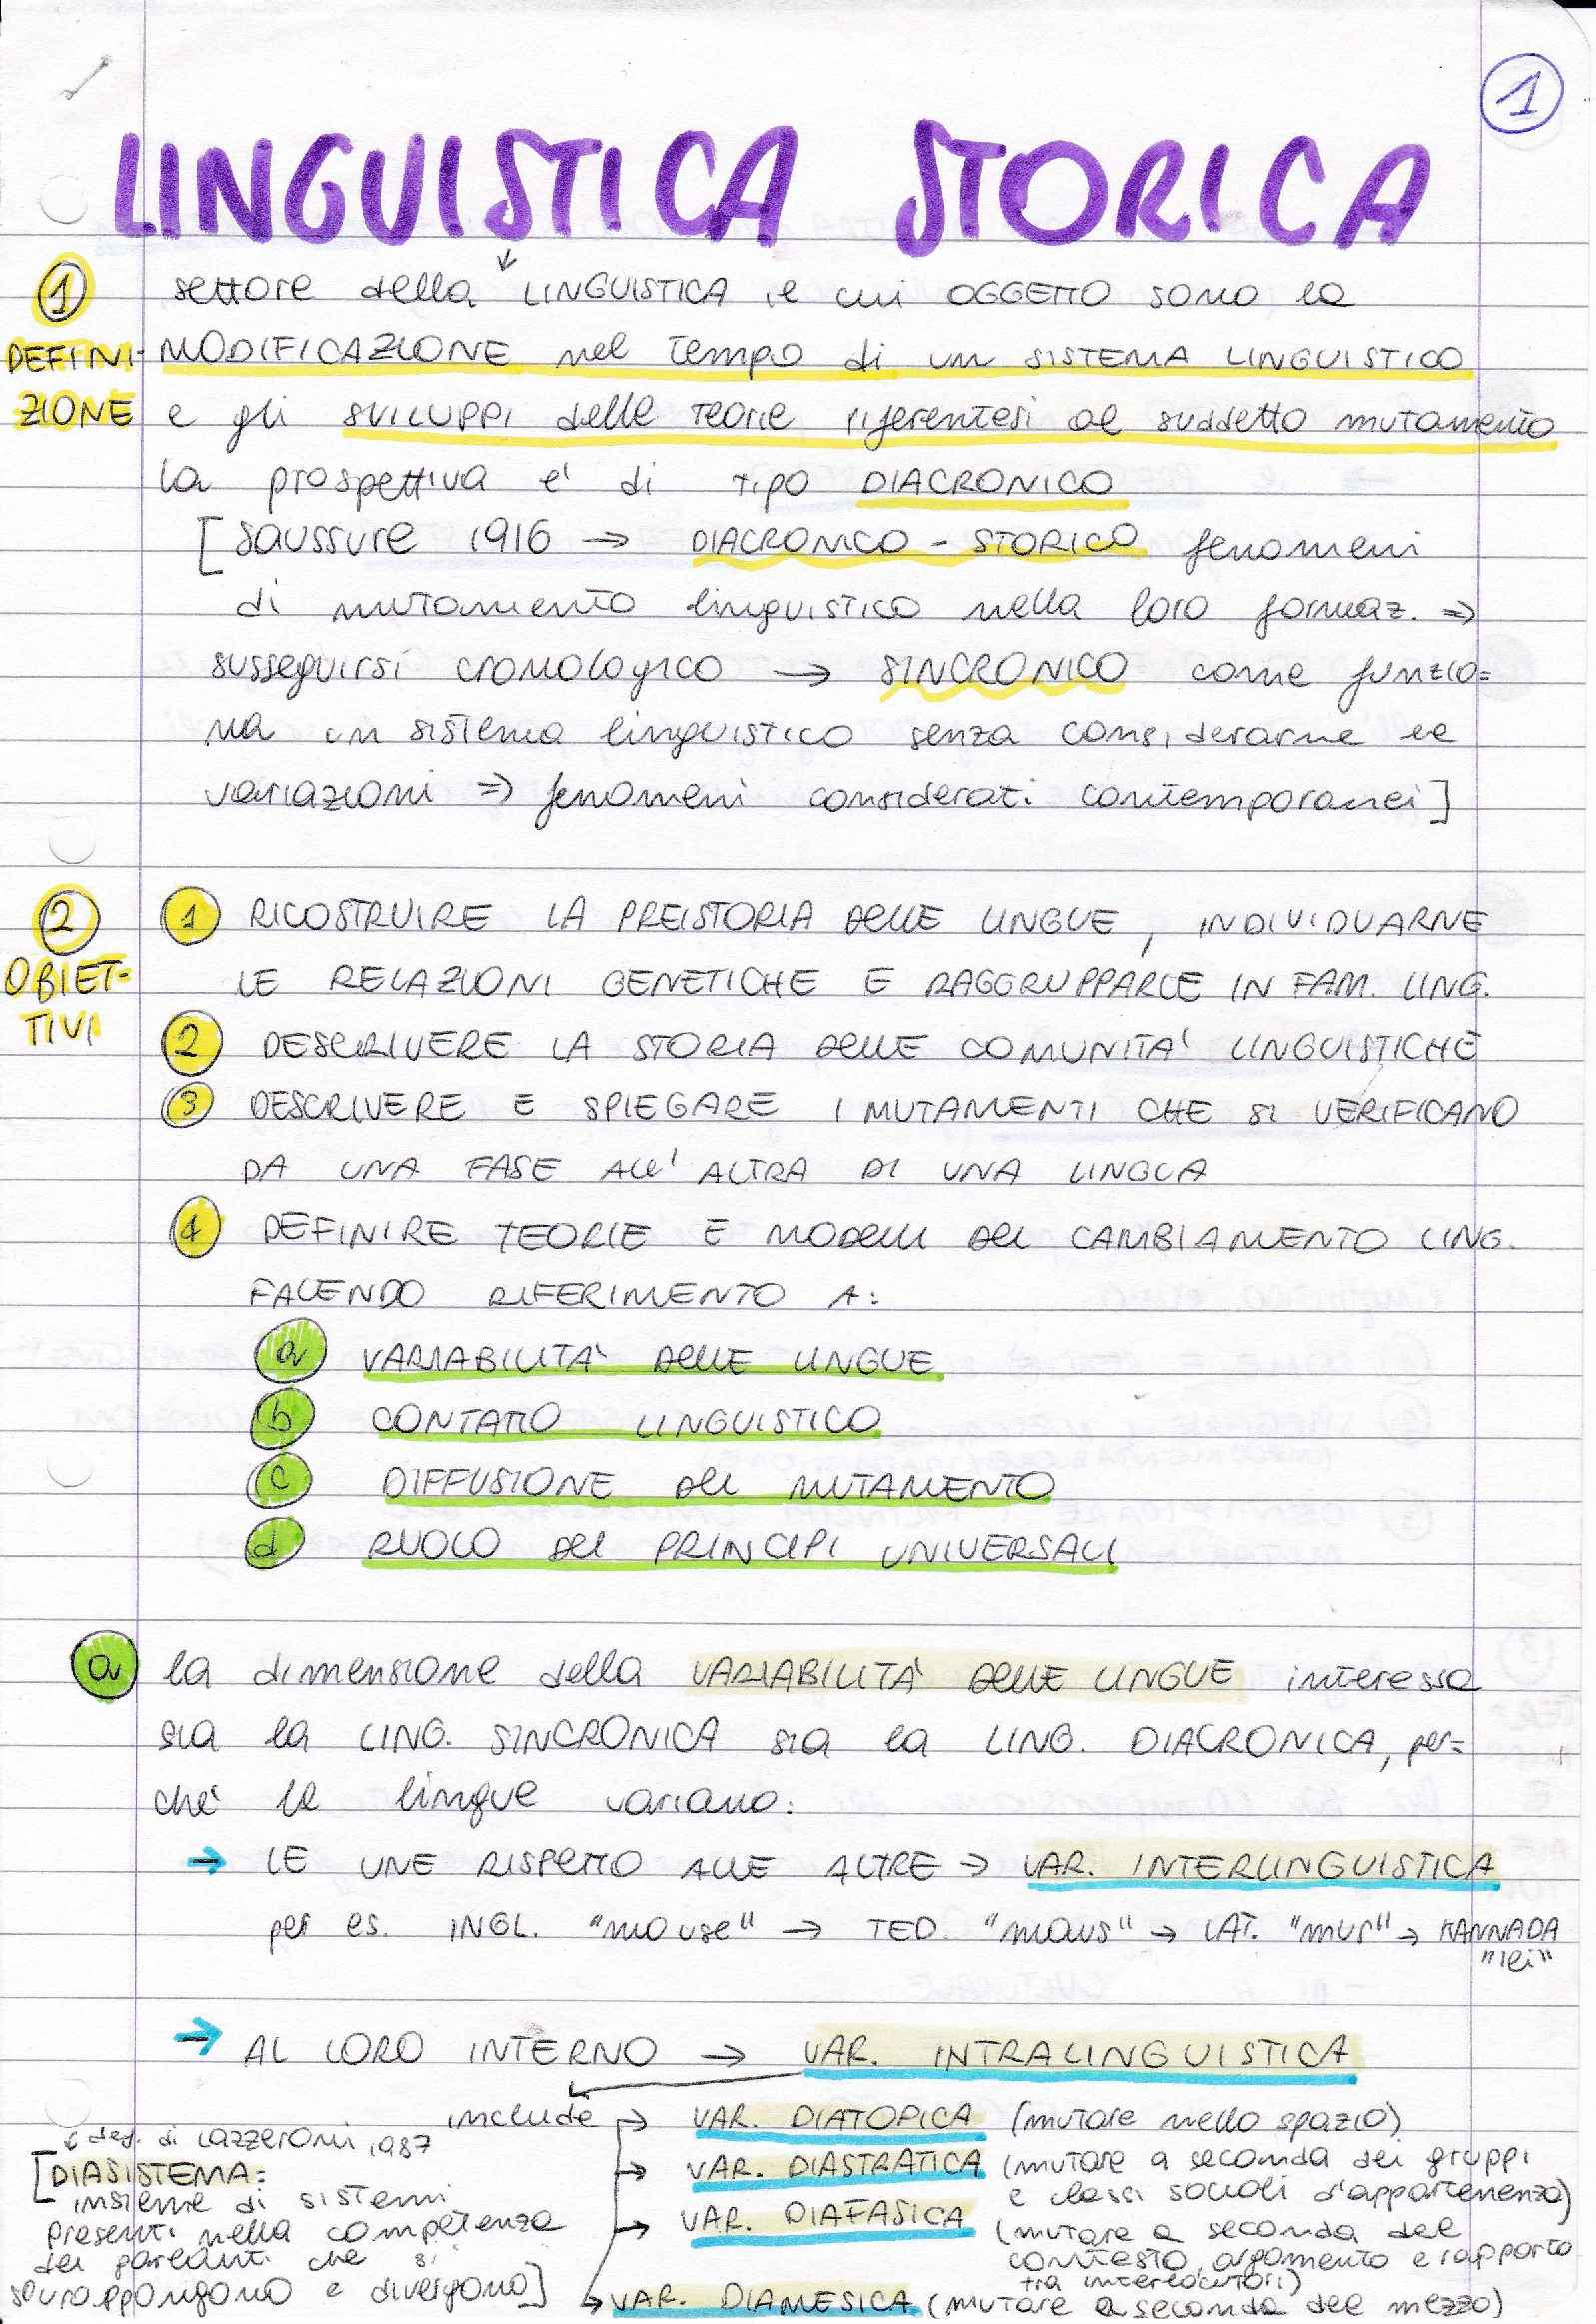 1
LINGUISTICA STORICA
1
DEFINI-
ZIONE
settore della LINGUISTICA il cui OGGETTO sono la
MODIFICAZIONE nel tempo di un SISTEMA LINGUISTICO
e gli SVILUPPI delle teorie riferentesi al suddetto mutamento
la prospettiva e' di tipo DIACRONICO
[Saussure 1916 → DIACRONICO - STORICO fenomeni
di mutamento linguistico nella loro formaz. ⇒
susseguirsi cronologico → SINCRONICO come funzio=
na un sistema linguistico senza considerarne le
variazioni ⇒ fenomeni considerati contemporanei]
2
OBIET-
TIVI
1 RICOSTRUIRE LA PREISTORIA DELLE LINGUE, INDIVIDUARNE
LE RELAZIONI GENETICHE E RAGGRUPPARLE IN FAM. LING.
2 DESCRIVERE LA STORIA DELLE COMUNITA' LINGUISTICHE
3 DESCRIVERE E SPIEGARE I MUTAMENTI CHE SI VERIFICANO
DA UNA FASE ALL'ALTRA DI UNA LINGUA
4 DEFINIRE TEORIE E MODELLI DEL CAMBIAMENTO LING.
FACENDO RIFERIMENTO A:
a VARIABILITA' DELLE LINGUE
b CONTATTO LINGUISTICO
c DIFFUSIONE DEL MUTAMENTO
d RUOLO DEI PRINCIPI UNIVERSALI
a la dimensione della VARIABILITA' DELLE LINGUE interessa
sia la LING. SINCRONICA sia la LING. DIACRONICA, per=
che' le lingue variano:
→ LE UNE RISPETTO ALLE ALTRE → VAR. INTERLINGUISTICA
per es. INGL. "mouse" → TED. "maus" → LAT. "mus" → KANNADA
"ili"
→ AL LORO INTERNO → VAR. INTRALINGUISTICA
include → VAR. DIATOPICA (mutare nello spazio)
→ VAR. DIASTRATICA (mutare a seconda dei gruppi
e classi sociali d'appartenenza)
→ VAR. DIAFASICA (mutare a seconda del
contesto, argomento e rapporto
tra interlocutori)
→ VAR. DIAMESICA (mutare a seconda del mezzo)
↓ def. di Lazzeroni, 1987
[DIASISTEMA:
insieme di sistemi
presenti nella competenza
dei parlanti che si
sovrappongono e divergono]